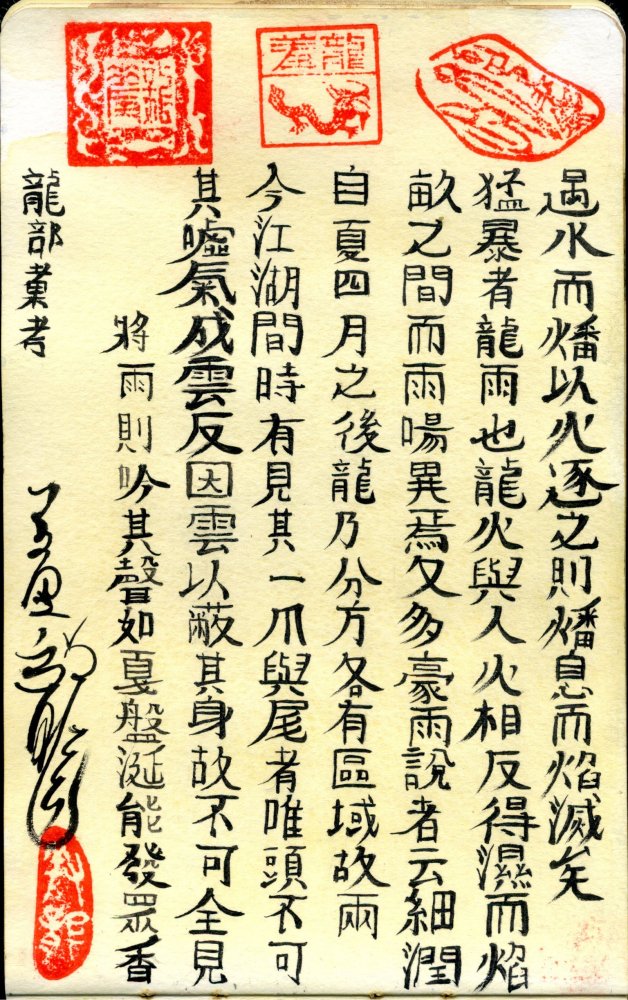 龍羞
龍部彙考
將雨則吟其聲如戛盤涎能發眾香
其噓氣成雲反因雲以蔽其身故不可全見
今江湖間時有見其一爪與尾者唯頭不可
自夏四月之後龍乃分方各有區域故兩
畝之間而雨暘異焉又多豪雨說者云細潤
猛暴者龍雨也龍火與人火相反得濕而焰
遇水而燔以火逐之則燔息而焰滅矣